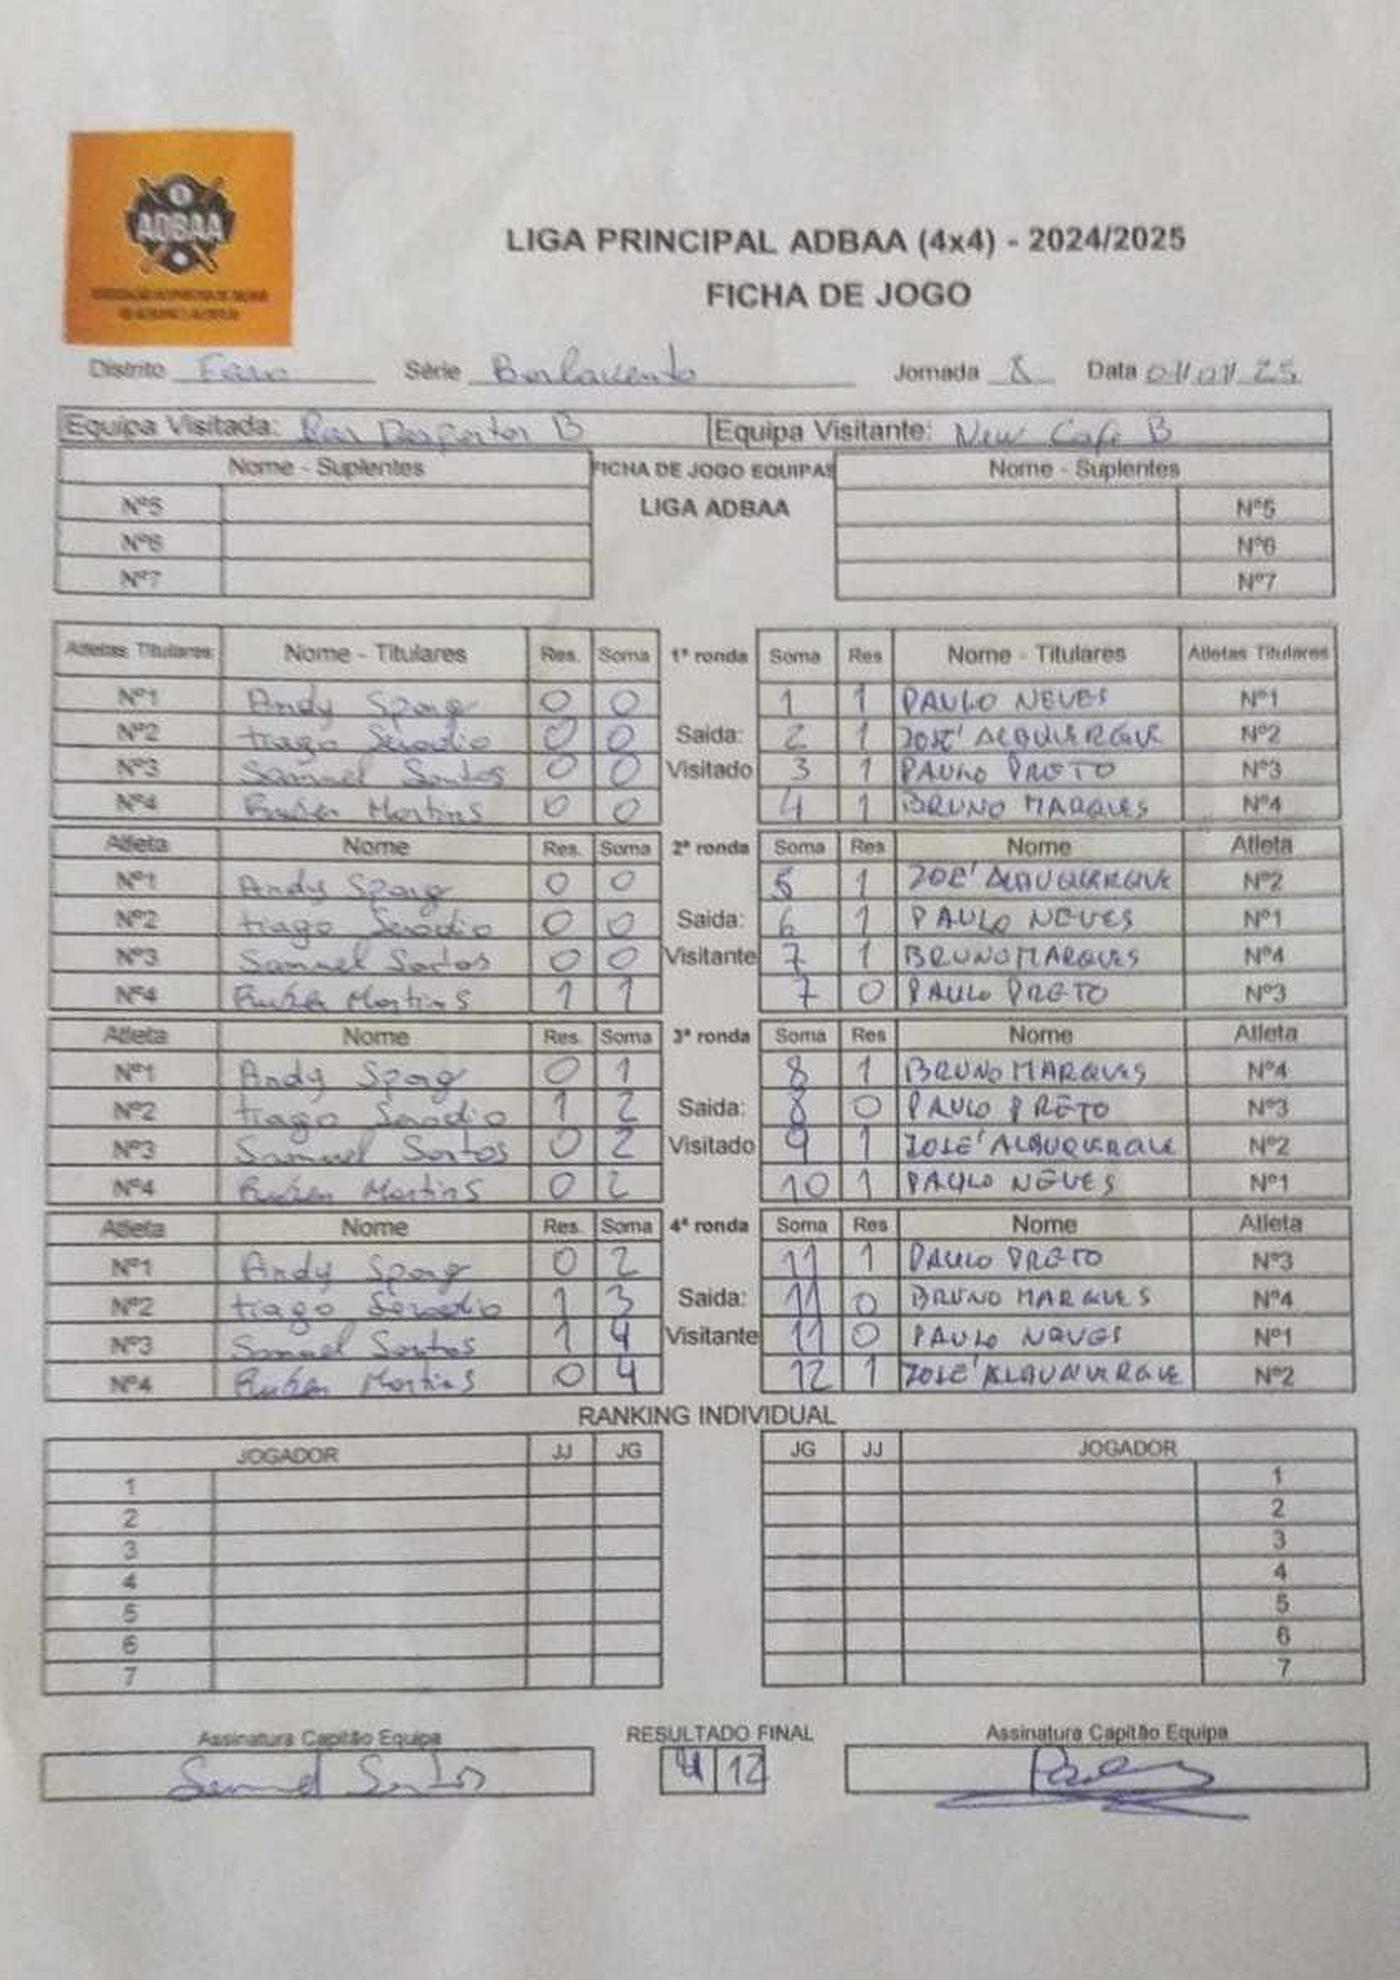 ADBAA
LIGA PRINCIPAL ADBAA (4x4) - 2024/2025
FICHA DE JOGO
Distrito Faro Série Barlavento Jornada 8 Data
Equipa Visitada: Bar Desportos B Equipa Visitante: New Café B
Nome - Suplentes FICHA DE JOGO EQUIPAS Nome - Suplentes
Nº5 LIGA ADBAA Nº5
Nº6 Nº6
Nº7 Nº7
Atletas Titulares Nome - Titulares Res. Soma 1ª ronda Soma Res Nome - Titulares Atletas Titulares
Nº1 Andy Sporg 0 0 1 1 PAULO NEVES Nº1
Nº2 tiago Serodio 0 0 Saida: 2 1 JOSÉ ALBUQUERQUE Nº2
Nº3 Samuel Santos 0 0 Visitado 3 1 PAULO PRETO Nº3
Nº4 Rubén Martins 0 0 4 1 BRUNO MARQUES Nº4
Atleta Nome Res. Soma 2ª ronda Soma Res Nome Atleta
Nº1 Andy Sporg 0 0 5 1 JOSÉ ALBUQUERQUE Nº2
Nº2 tiago Serodio 0 0 Saida: 6 1 PAULO NEVES Nº1
Nº3 Samuel Santos 0 0 Visitante 7 1 BRUNO MARQUES Nº4
Nº4 Rubén Martins 1 1 7 0 PAULO PRETO Nº3
Atleta Nome Res. Soma 3ª ronda Soma Res Nome Atleta
Nº1 Andy Sporg 0 1 8 1 BRUNO MARQUES Nº4
Nº2 tiago Serodio 1 2 Saida: 8 0 PAULO PRETO Nº3
Nº3 Samuel Santos 0 2 Visitado 9 1 JOSÉ ALBUQUERQUE Nº2
Nº4 Rubén Martins 0 2 10 1 PAULO NEVES Nº1
Atleta Nome Res. Soma 4ª ronda Soma Res Nome Atleta
Nº1 Andy Sporg 0 2 11 1 PAULO PRETO Nº3
Nº2 tiago Serodio 1 3 Saida: 11 0 BRUNO MARQUES Nº4
Nº3 Samuel Santos 1 4 Visitante 11 0 PAULO NEVES Nº1
Nº4 Rubén Martins 0 4 12 1 JOSÉ ALBUQUERQUE Nº2
RANKING INDIVIDUAL
JOGADOR JJ JG JG JJ JOGADOR
1 1
2 2
3 3
4 4
5 5
6 6
7 7
Assinatura Capitão Equipa RESULTADO FINAL Assinatura Capitão Equipa
Samuel Santos 4 12